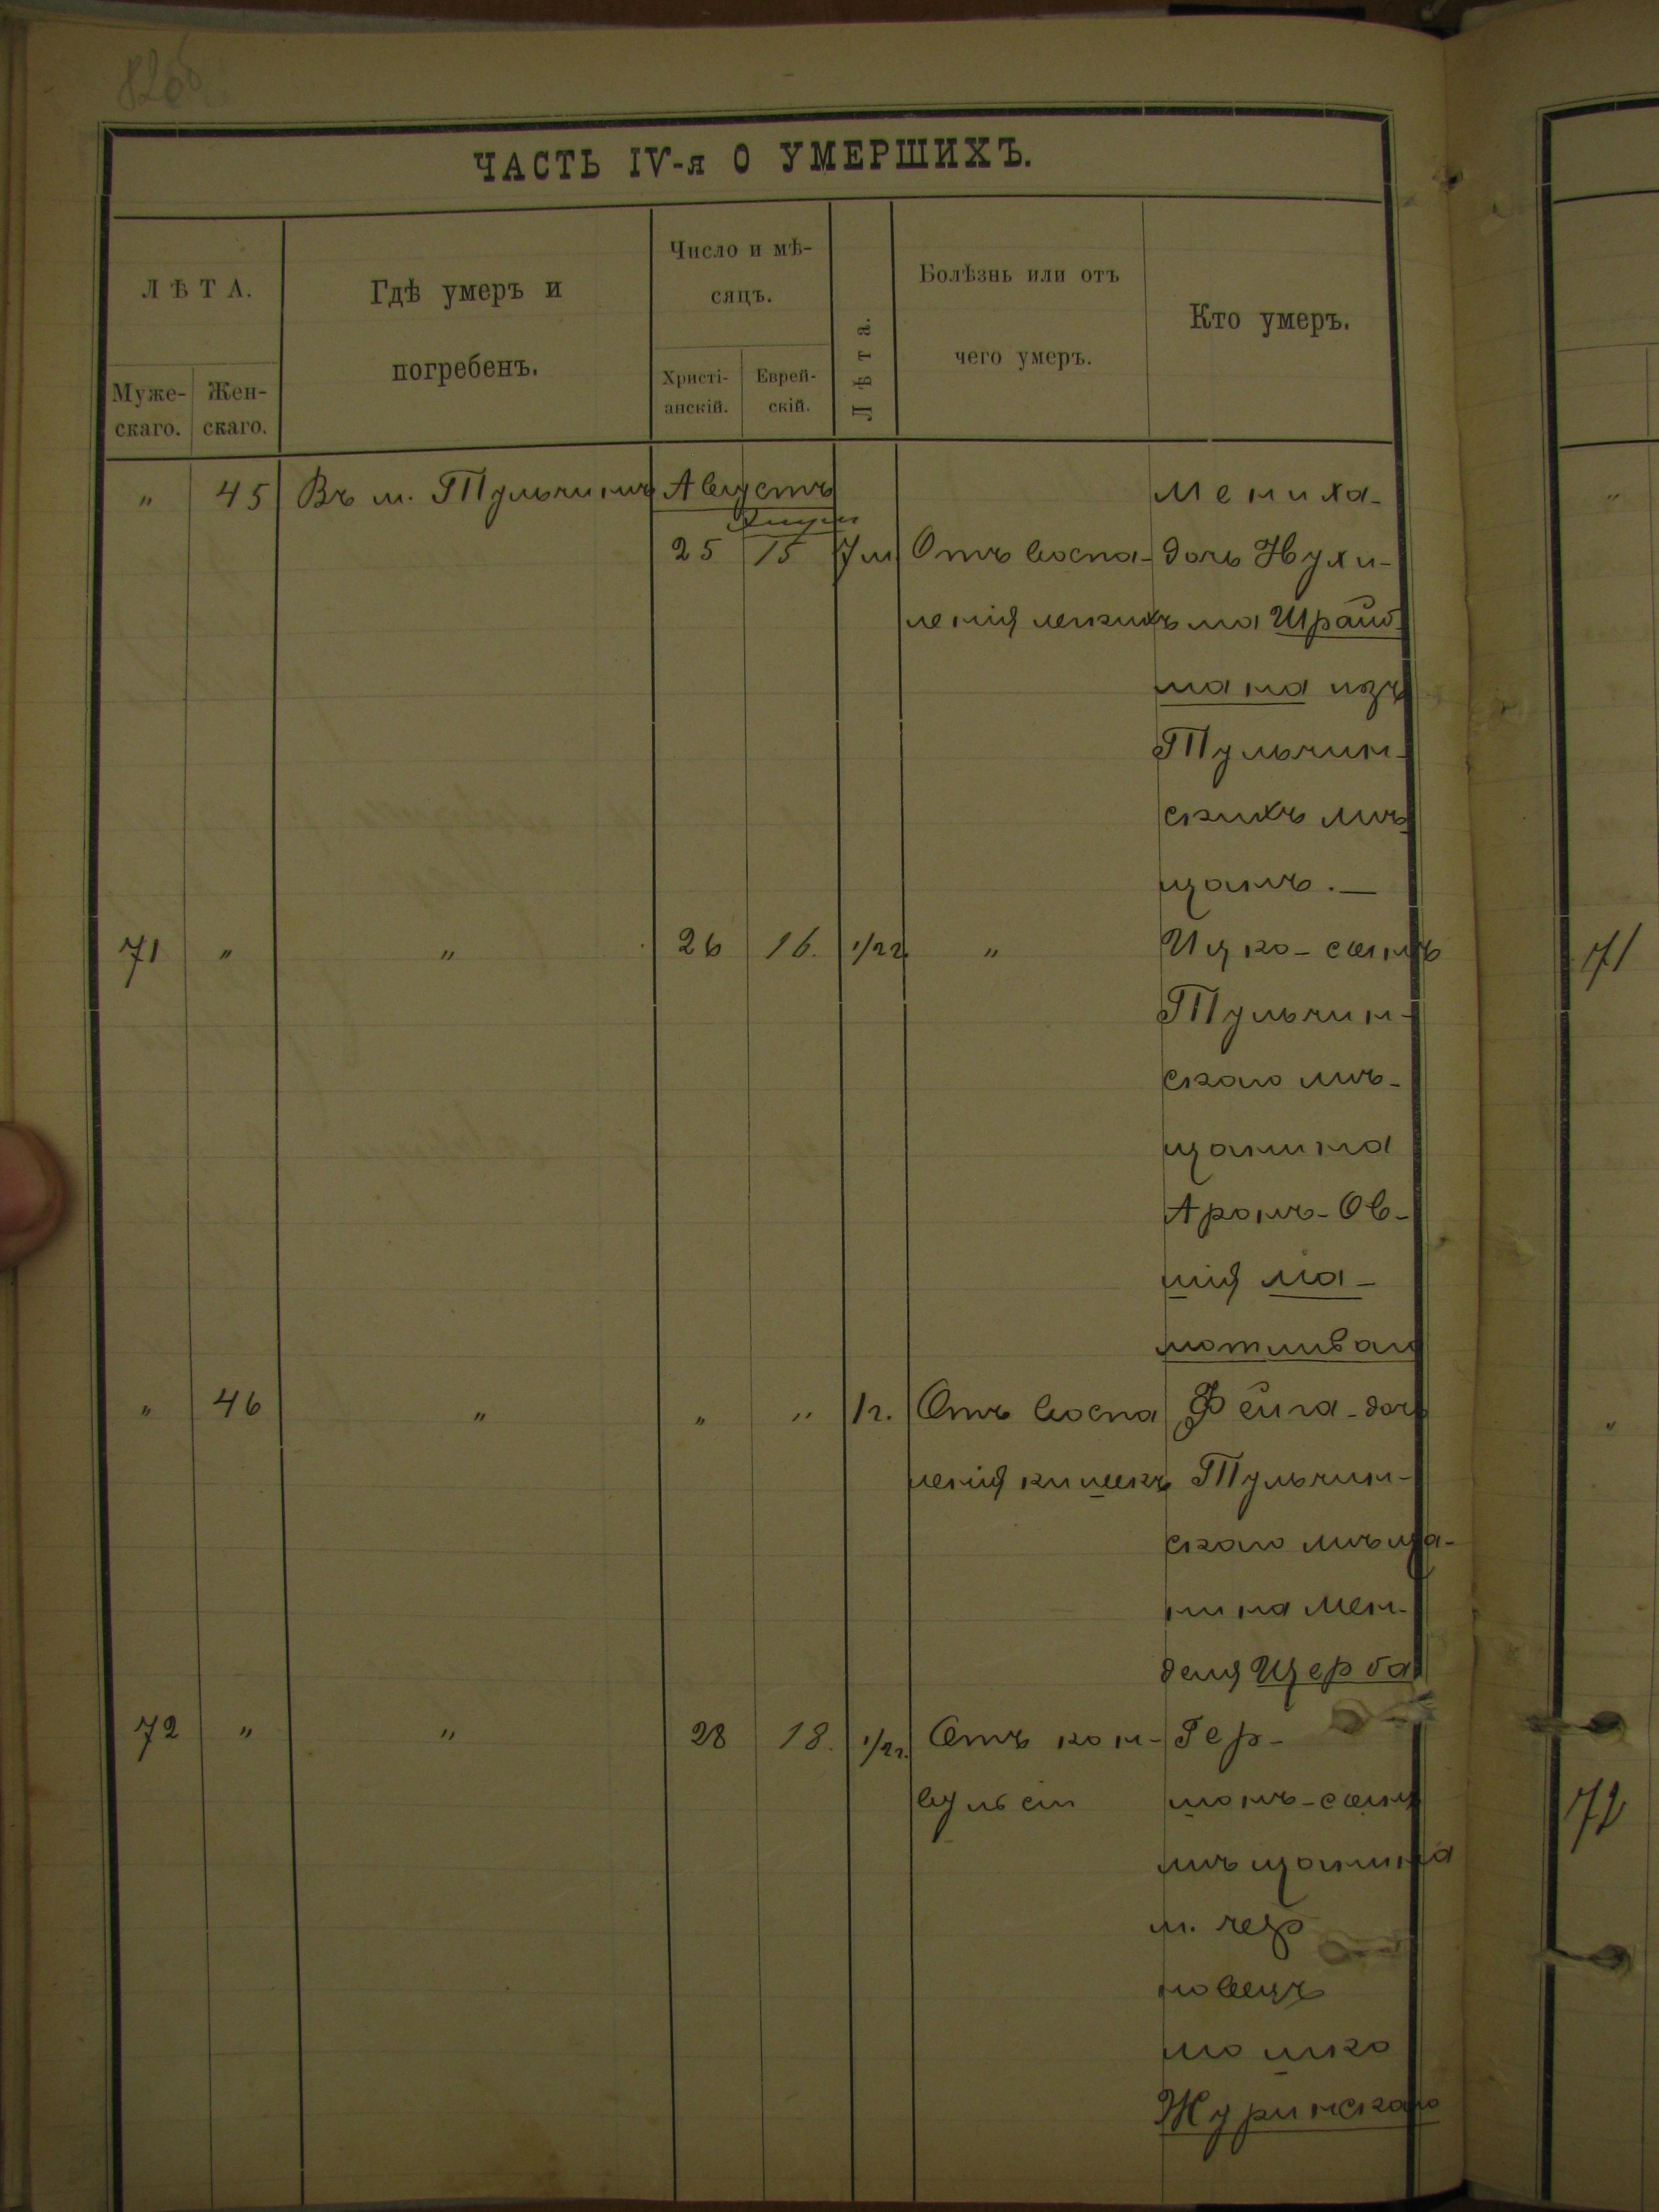 820б
ЧАСТЬ IV-я О УМЕРШИХЪ.
ЛѢТА.
Муже-
скаго.
Жен-
скаго.
Гдѣ умеръ и
погребенъ.
Число и мѣ-
сяцъ.
Христі-
анскій.
Еврей-
скій.
Лѣта.
Болѣзнь или отъ
чего умеръ.
Кто умеръ.
" 45 Въ м. Тульчинѣ Августъ Мениха-
25 15 7 м Отъ воспа- дочь Нухи-
ленія легкихъ ма Шрайб-
мана изъ
Тульчин-
скихъ мѣ
щанъ. —
71 " " 26 16. 1/2 г. " Ицко-сынъ
Тульчин-
скаго мѣ-
щанина
Аронъ-Ов-
шія Ма-
лотливаго
" 46 " " " 1 г. Отъ воспа Фейга-дочь
ленія кишекъ Тульчин-
скаго мѣща-
нина Мен-
деля Щерба
72 " " 28 18. 1/2 г. Отъ кон- Гер-
вульсій шонъ-сынъ
мѣщанина
м. Чер
новецъ
Мошко
Журинскаго
71
"
72